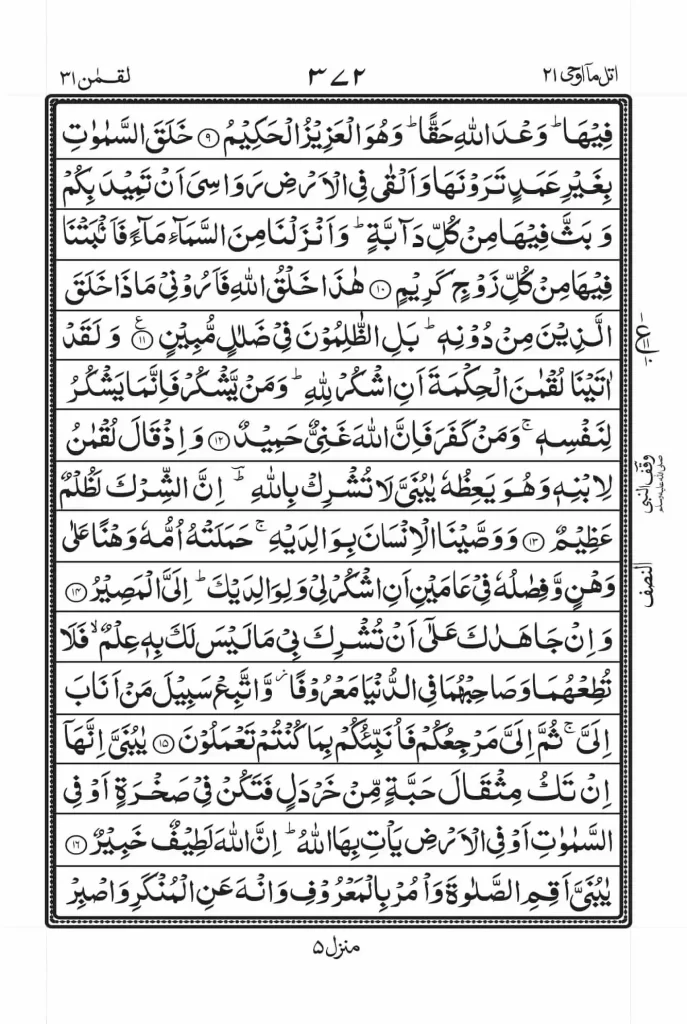 اتل ماۤ اوحی ۲۱
۳۷۲
لقمٰن ۳۱
فِیْهَا ؕ وَعْدَ اللّٰهِ حَقًّا ؕ وَهُوَ الْعَزِیْزُ الْحَكِیْمُ ۹ خَلَقَ السَّمٰوٰتِ
بِغَیْرِ عَمَدٍ تَرَوْنَهَا وَاَلْقٰی فِی الْاَرْضِ رَوَاسِیَ اَنْ تَمِیْدَ بِكُمْ
وَ بَثَّ فِیْهَا مِنْ كُلِّ دَآبَّةٍ ؕ وَاَنْزَلْنَا مِنَ السَّمَآءِ مَآءً فَاَنْۢبَتْنَا
فِیْهَا مِنْ كُلِّ زَوْجٍ كَرِیْمٍ ۱۰ هٰذَا خَلْقُ اللّٰهِ فَاَرُوْنِیْ مَاذَا خَلَقَ
الَّذِیْنَ مِنْ دُوْنِهٖ ؕ بَلِ الظّٰلِمُوْنَ فِیْ ضَلٰلٍ مُّبِیْنٍ ۱۱ ع وَ لَقَدْ
اٰتَیْنَا لُقْمٰنَ الْحِكْمَةَ اَنِ اشْكُرْ لِلّٰهِ ؕ وَمَنْ یَّشْكُرْ فَاِنَّمَا یَشْكُرُ
لِنَفْسِهٖ ۚ وَمَنْ كَفَرَ فَاِنَّ اللّٰهَ غَنِیٌّ حَمِیْدٌ ۱۲ وَ اِذْ قَالَ لُقْمٰنُ
لِابْنِهٖ وَهُوَ یَعِظُهٗ یٰبُنَیَّ لَا تُشْرِكْ بِاللّٰهِ ؕ اِنَّ الشِّرْكَ لَظُلْمٌ
عَظِیْمٌ ۱۳ وَوَصَّیْنَا الْاِنْسَانَ بِوَالِدَیْهِ ۚ حَمَلَتْهُ اُمُّهٗ وَهْنًا عَلٰی
وَهْنٍ وَّفِصٰلُهٗ فِیْ عَامَیْنِ اَنِ اشْكُرْ لِیْ وَلِوَالِدَیْكَ ؕ اِلَیَّ الْمَصِیْرُ ۱۴
وَ اِنْ جَاهَدٰكَ عَلٰۤی اَنْ تُشْرِكَ بِیْ مَا لَیْسَ لَكَ بِهٖ عِلْمٌ ۙ فَلَا
تُطِعْهُمَا وَصَاحِبْهُمَا فِی الدُّنْیَا مَعْرُوْفًا ؗ وَّاتَّبِعْ سَبِیْلَ مَنْ اَنَابَ
اِلَیَّ ۚ ثُمَّ اِلَیَّ مَرْجِعُكُمْ فَاُنَبِّئُكُمْ بِمَا كُنْتُمْ تَعْمَلُوْنَ ۱۵ یٰبُنَیَّ اِنَّهَاۤ
اِنْ تَكُ مِثْقَالَ حَبَّةٍ مِّنْ خَرْدَلٍ فَتَكُنْ فِیْ صَخْرَةٍ اَوْ فِی
السَّمٰوٰتِ اَوْ فِی الْاَرْضِ یَاْتِ بِهَا اللّٰهُ ؕ اِنَّ اللّٰهَ لَطِیْفٌ خَبِیْرٌ ۱۶
یٰبُنَیَّ اَقِمِ الصَّلٰوةَ وَاْمُرْ بِالْمَعْرُوْفِ وَانْهَ عَنِ الْمُنْكَرِ وَاصْبِرْ
وقف النبی
صلی اللہ علیہ وسلم
النصف
منزل ۵